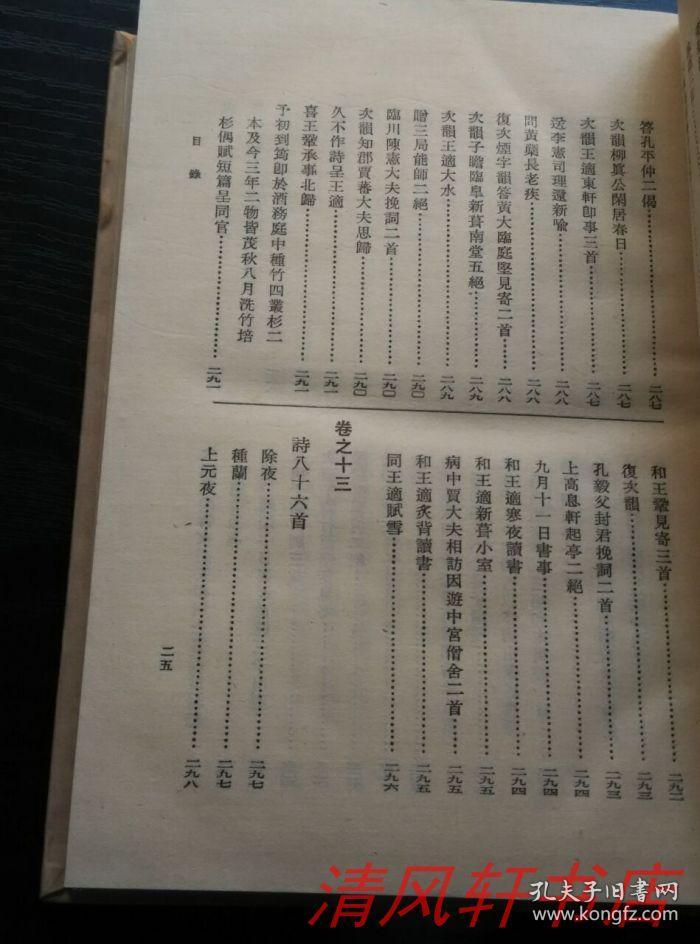 答孔平仲二偈……二八七
次韻柳真公閑居春日……二八七
次韻王適東軒卽事三首……二八七
送李憲司理還新喻……二八八
問黃蘗長老疾……二八八
復次煙字韻答黃大臨庭堅見寄二首……二八八
次韻子瞻臨皐新葺南堂五絕……二八九
次韻王適大水……二八九
贈三局能師二絕……二九〇
臨川陳憲大夫挽詞二首……二九〇
次韻知郡賈蕃大夫思歸……二九〇
久不作詩呈王適……二九一
喜王鞏承事北歸……二九一
予初到筠卽於酒務庭中種竹四叢杉二
本及今三年二物皆茂秋八月洗竹培
杉偶賦短篇呈同官……二九一
目錄
和王鞏見寄三首……二九二
復次韻……二九三
孔毅父封君挽詞二首……二九三
上高息軒起亭二絕……二九四
九月十一日書事……二九四
和王適寒夜讀書……二九四
和王適新葺小室……二九五
病中賈大夫相訪因遊中宮僧舍二首……二九五
和王適炙背讀書……二九五
同王適賦雪……二九六
卷之十三
詩八十六首
除夜……二九七
種蘭……二九七
上元夜……二九八
二五
清风轩书店
孔夫子旧书网
www.kongfz.com